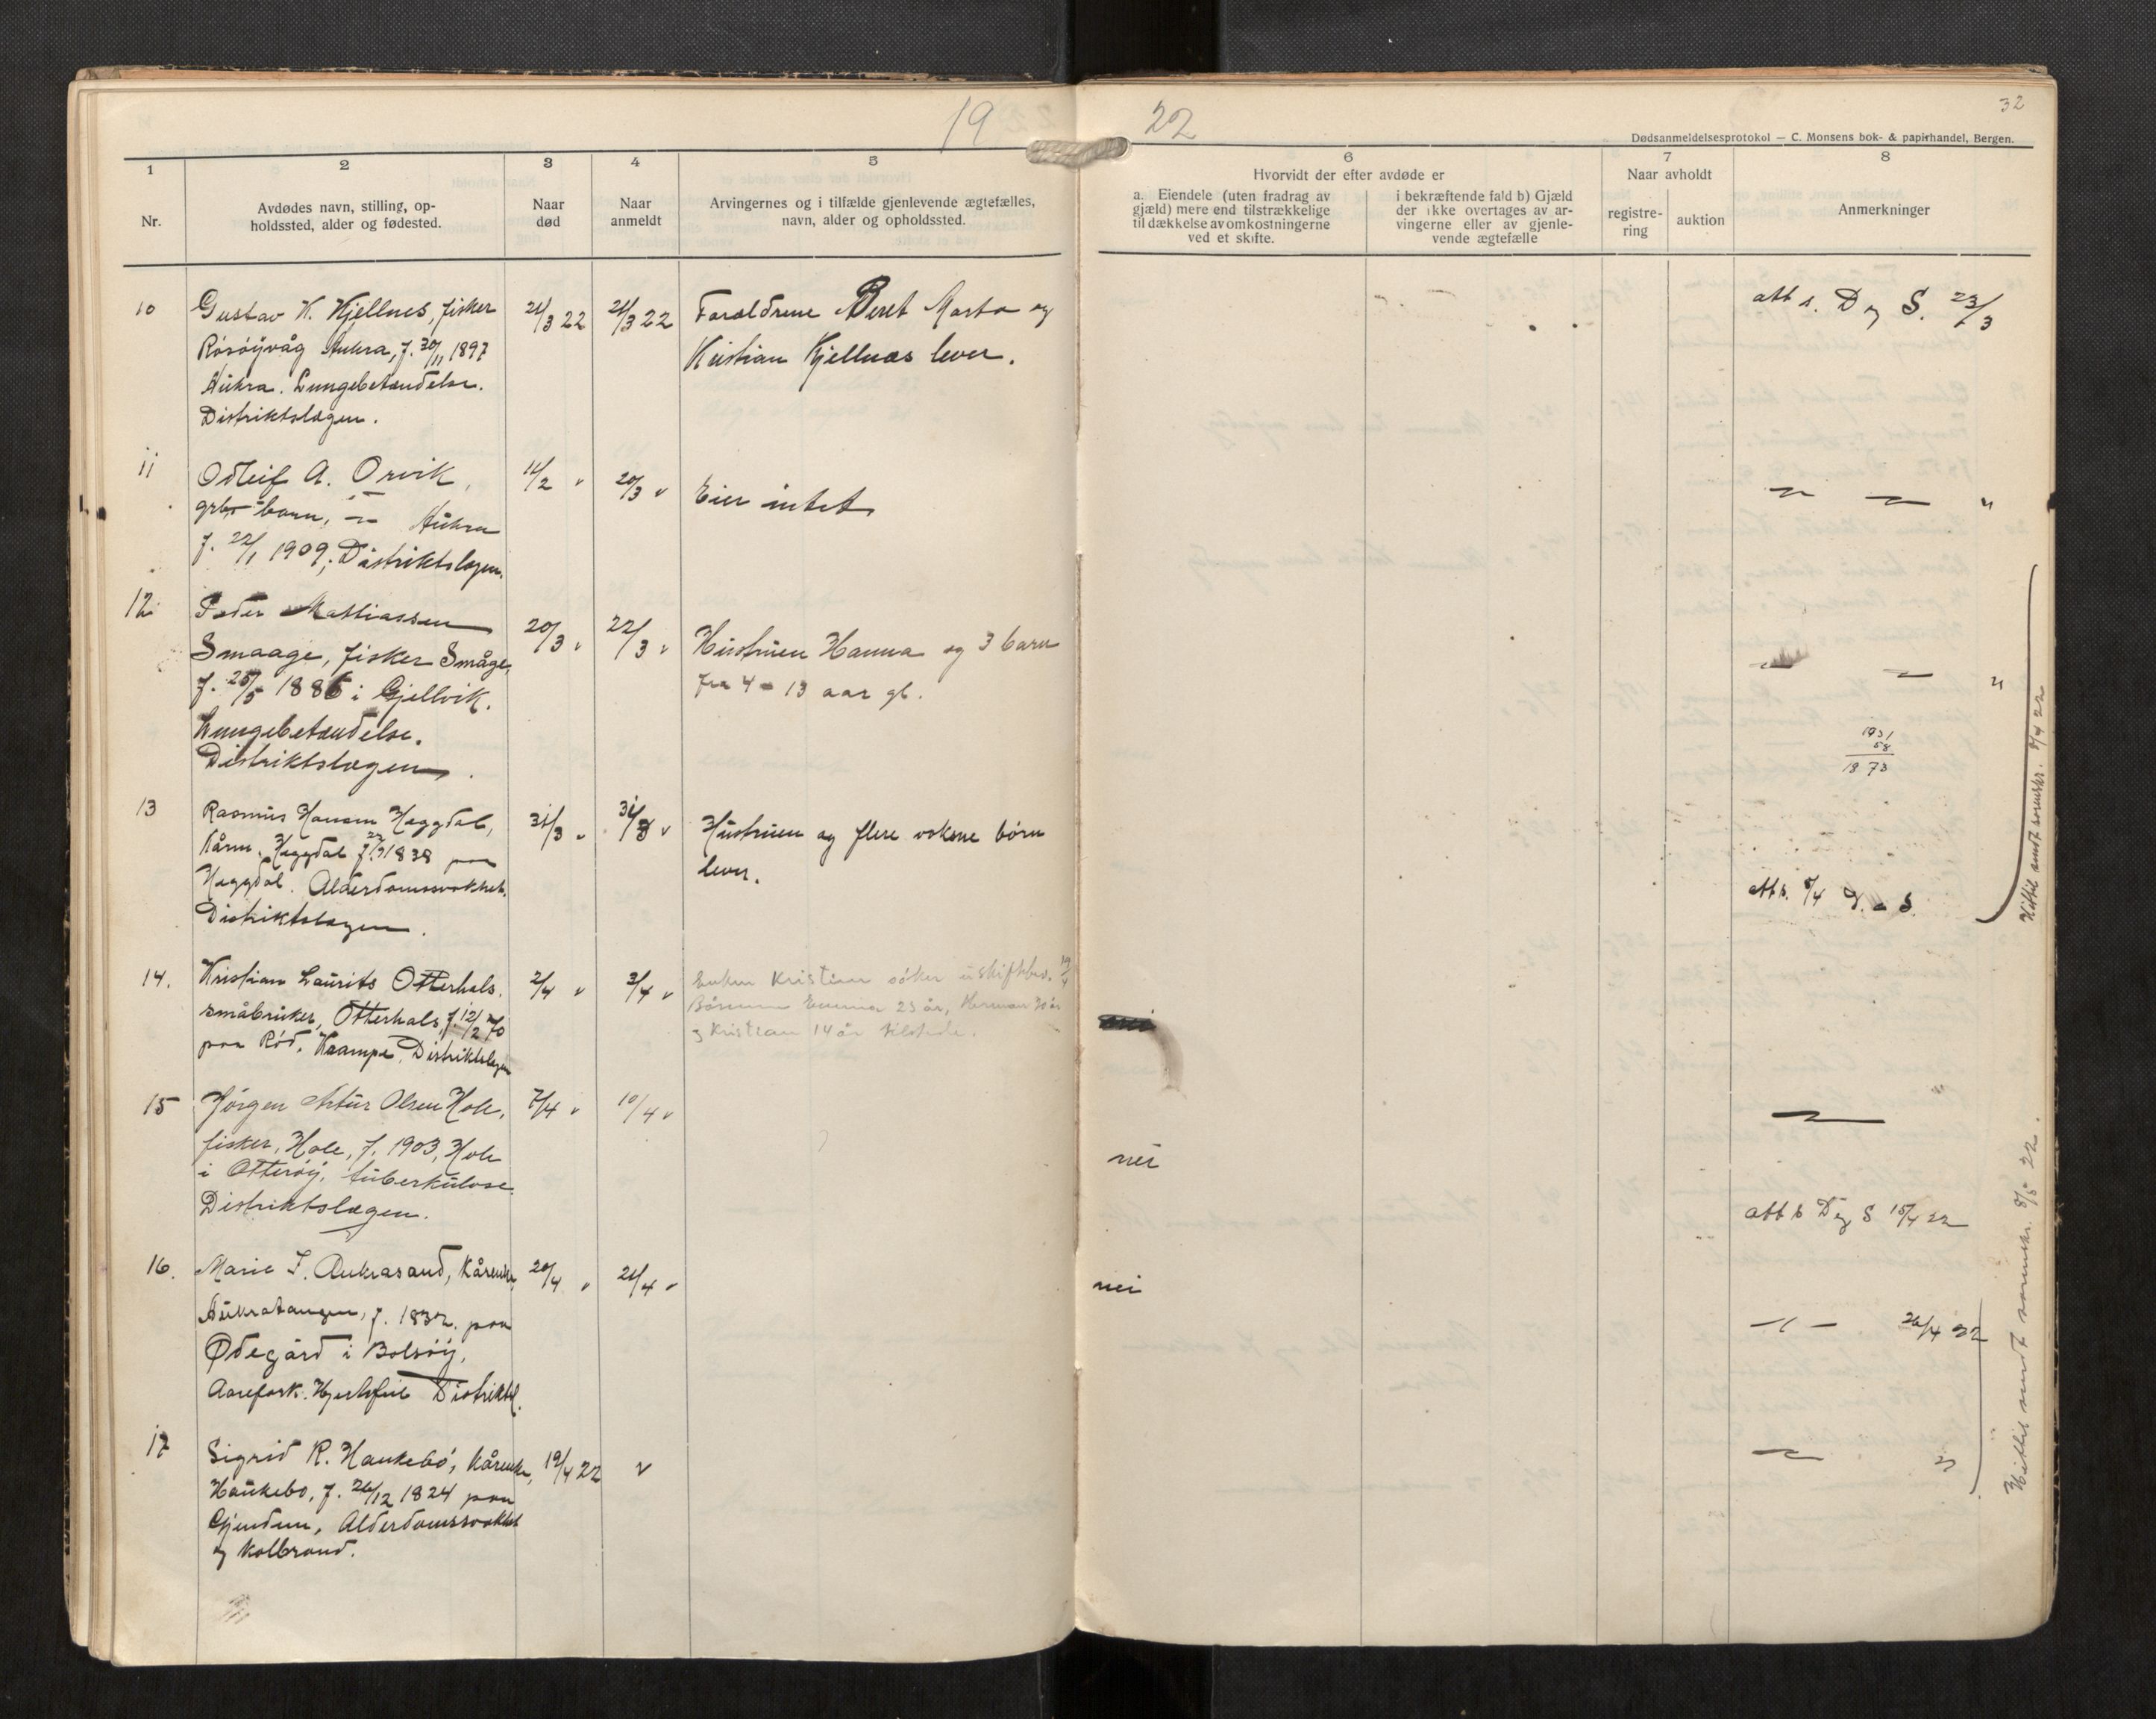 19 22
32
Dødsanmeldelsesprotokol — C. Monsens bok- & papirhandel, Bergen.
1
2
3
4
5
6
7
8
Nr.
Avdødes navn, stilling, op-
holdssted, alder og fødested.
Naar
død
Naar
anmeldt
Arvingernes og i tilfælde gjenlevende ægtefælles,
navn, alder og opholdssted.
Hvorvidt der efter avdøde er
a. Eiendele (uten fradrag av
gjæld) mere end tilstrækkelige
til dækkelse av omkostningerne
ved et skifte.
i bekræftende fald b) Gjæld
der ikke overtages av ar-
vingerne eller av gjenle-
vende ægtefælle
Naar avholdt
registre-
ring
auktion
Anmerkninger
10 Gustav K. Kjellnes, fisker 21/3 22 21/3 22 Forældrene Beret Marta og att s. D og S. 23/3
Rösöyvåg Aukra, f. 30/11 1897 Kristian Kjellnæs lever.
Aukra. Lungebetændelse.
Distriktslægen.
11 Odleif A. Orvik, 11/2 " 20/3 " Eier intet — — "
barn, — Aukra
f. 22/1 1909, Distriktslægen.
12 Peder Mathiassen 20/3 " 22/3 " Hustruen Hanna og 3 barn — — "
Smaage, fisker Småge, fra 4 - 13 aar gl.
f. 25/5 1886 i Gjellvik.
Lungebetændelse.
Distriktslægen.
1931
58
1873
13 Rasmus Hansen Heggdal, 31/3 " 31/3 " Hustruen og flere voksne börn
Kårm. Heggdal f. 1838 paa lever.
Heggdal. Alderdomssvakhet. att s. 8/4 D. - S.
Distriktslægen.
Hittil sendt sorenskr. 8/4 22
14. Kristian Laurits Otterhals. 2/4 " 3/4 " Enken Kristian söker uskiftebev. 19/4
småbruker, Otterhals, f. 12/2 70 Börnene Emma 23 år, Herman 20 år
paa Röd. Krampe. Distriktslægen og Kristian 14 år tilstede. nei
15 Jörgen Artur Olsen Hole, 7/4 " 10/4 " —
fisker, Hole, f. 1903, Hole nei
i Otteröy, tuberkulose.
Distriktslægen. att s D og S 15/4 22
16. Marie J. Aukrasand, Kårenke, 20/4 " 21/4 " nei
Aukratangen, f. 1832. paa — " — 26/4 22
Ødegård i Bolsöy.
Aarefork. Hjertefeil Distriktsl.
17 Sigrid R. Haukebö, Kårenke, 19/4 22 " — "
Haukebo, f. 26/12 1824 paa
Gjendem, Alderdomssvakhet
og Kolbrand.
Hittil sendt sorenskr. 8/5 22.